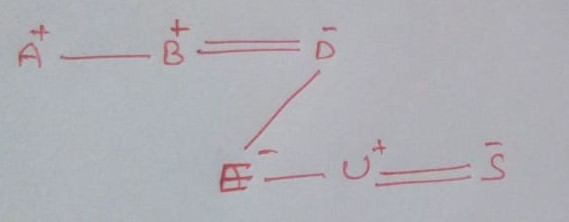 A⁺ — B⁺ = D⁻
E⁻ — U⁺ = S⁻